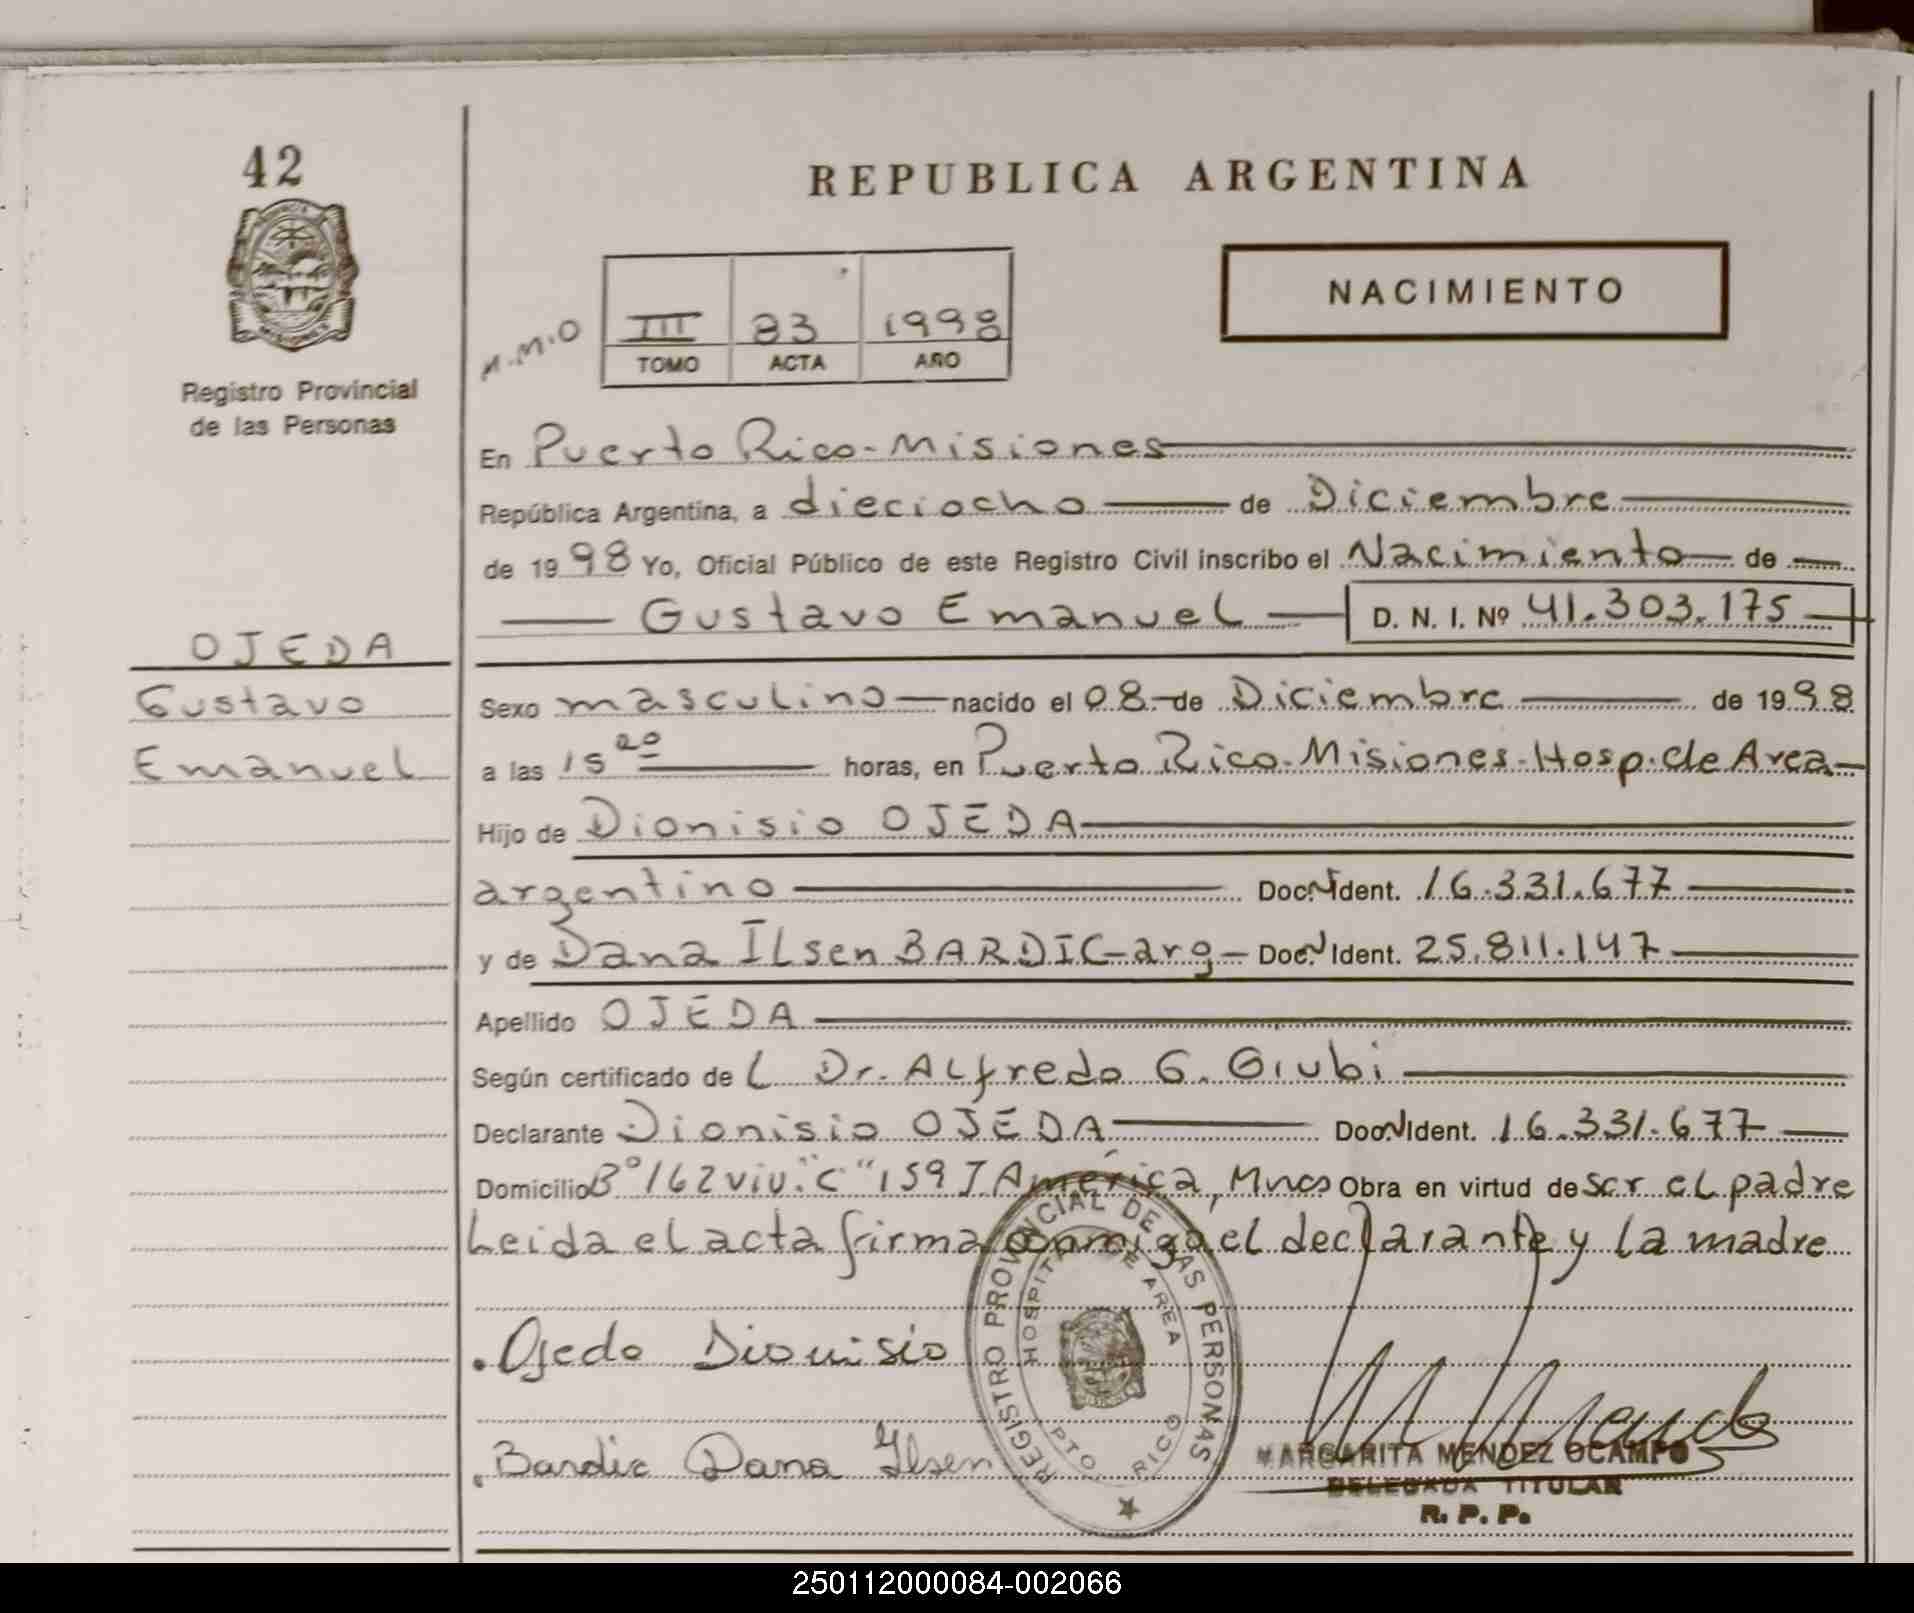 42
REPUBLICA ARGENTINA
NACIMIENTO
III 83 1998
TOMO ACTA AÑO
Registro Provincial
de las Personas
En Puerto Rico - Misiones
República Argentina, a dieciocho de Diciembre
de 1998 Yo, Oficial Público de este Registro Civil inscribo el Nacimiento de
Gustavo Emanuel D. N. I. Nº 41.303.175
OJEDA
Gustavo
Emanuel
Sexo masculino nacido el 08 de Diciembre de 1998
a las 15 20 horas, en Puerto Rico - Misiones - Hosp. de Area
Hijo de Dionisio OJEDA
argentino Doc. N Ident. 16.331.677
y de Dana ILsen BARDIC - arg - Doc. N Ident. 25.811.147
Apellido OJEDA
Según certificado de L Dr. ALfredo G. Giubi
Declarante Dionisio OJEDA Doc N Ident. 16.331.677
Domicilio Bº 162 viv. "C" 159 J América, Mnes Obra en virtud de ser el padre
Leida el acta firma conmigo el declarante y la madre
Ojeda Dionisio
Bardic Dana Ilsen
REGISTRO PROVINCIAL DE LAS PERSONAS
HOSPITAL DE AREA
PTO. RICO
MARGARITA MENDEZ OCAMPO
DELEGADA TITULAR
R. P. P.
250112000084-002066